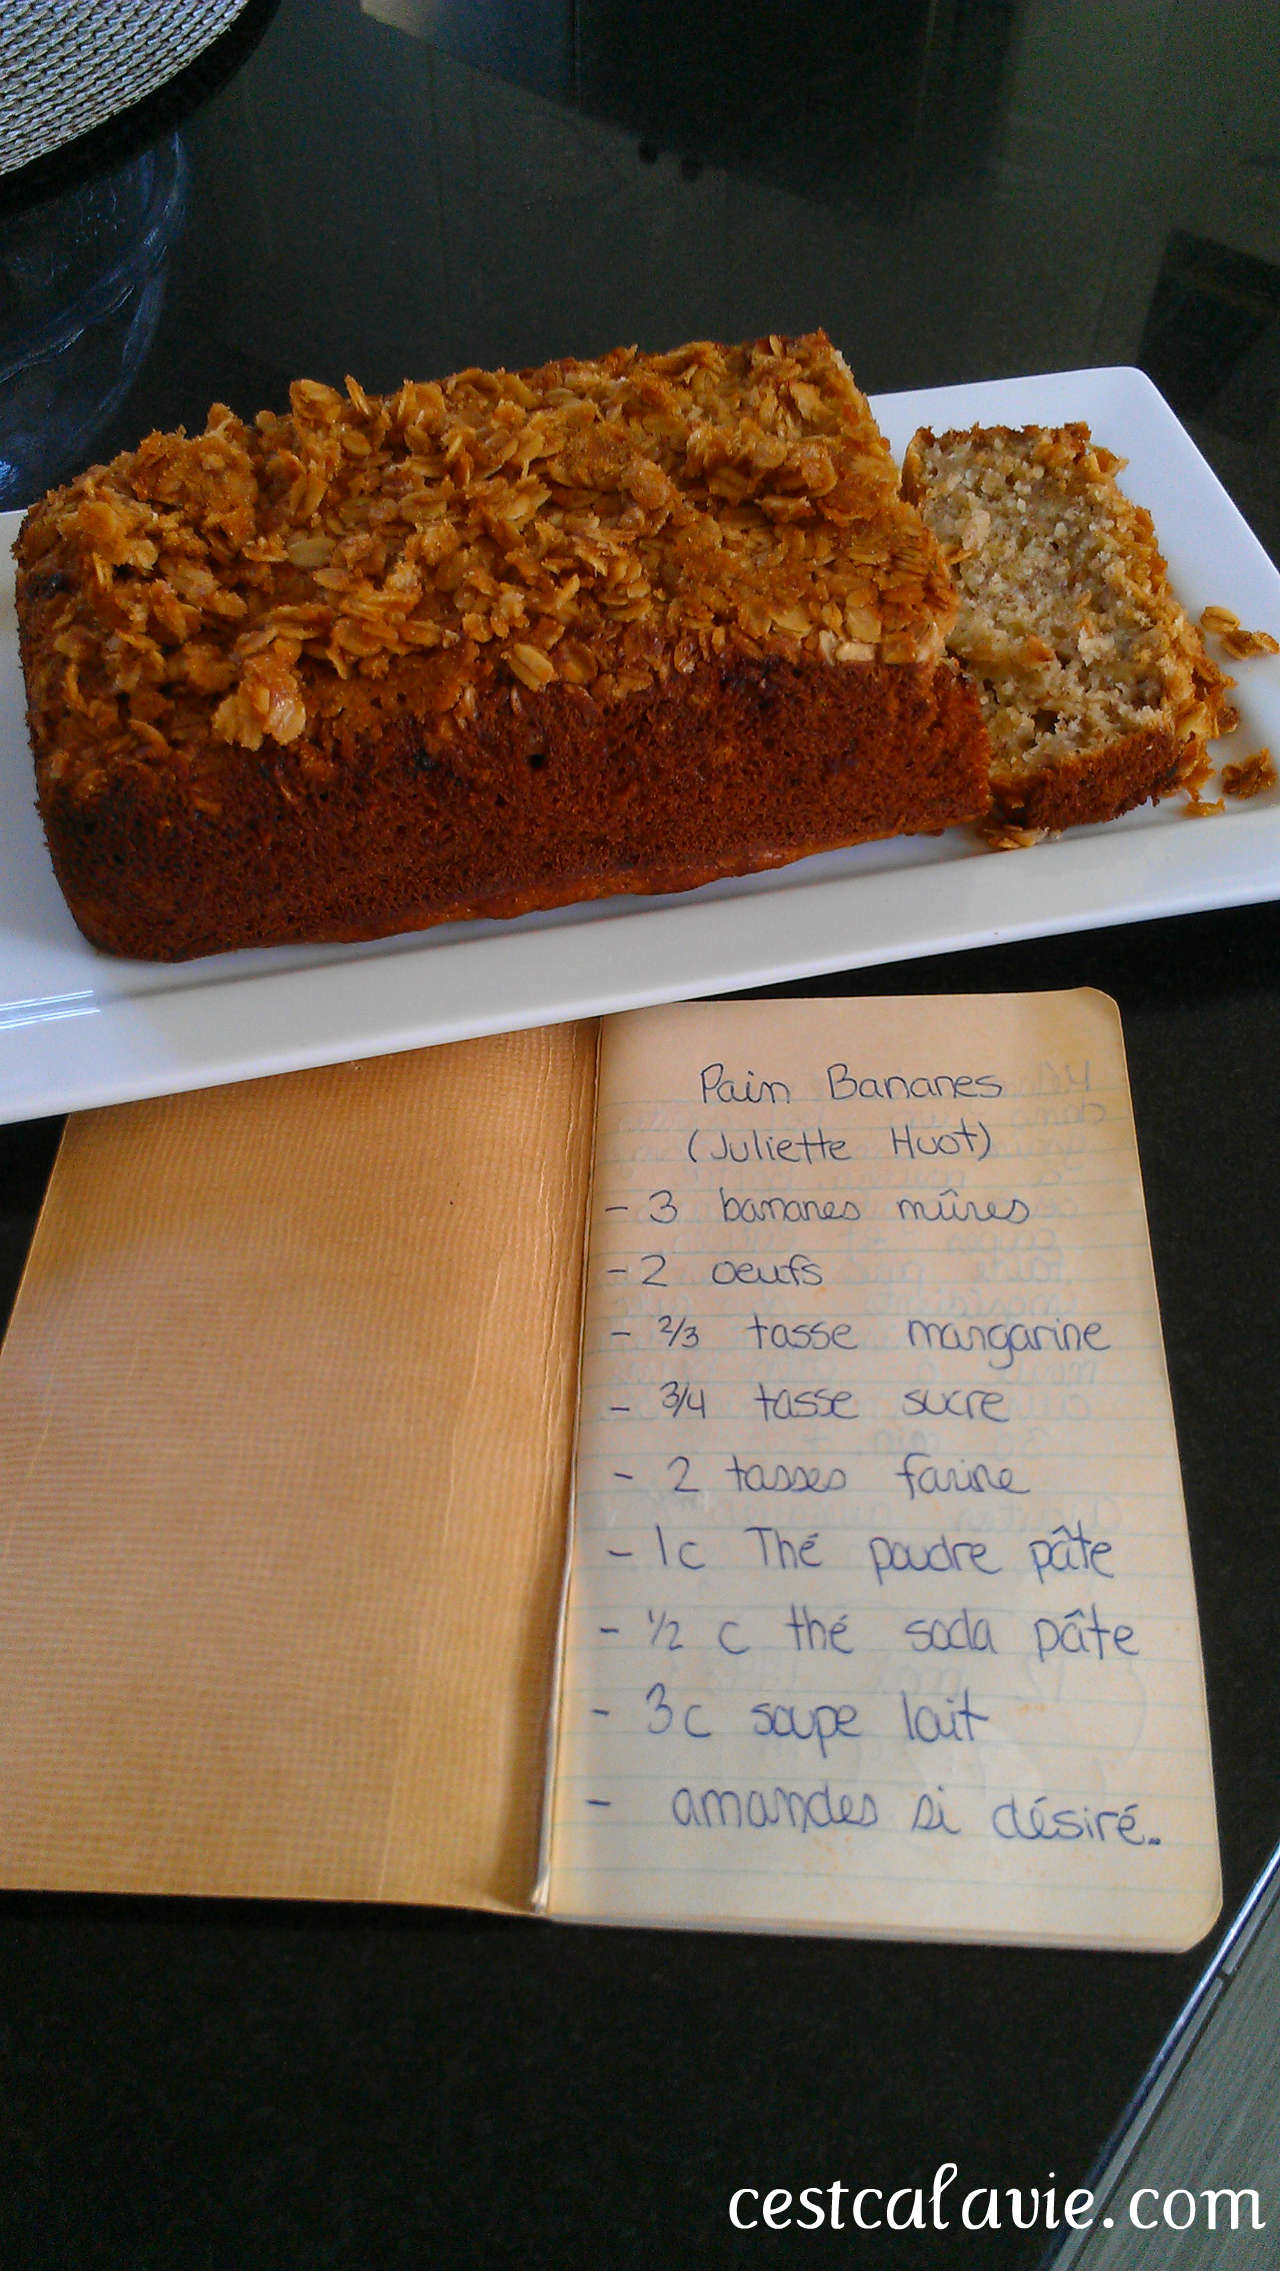 Pain Bananes
(Juliette Huot)
- 3 bananes mûres
- 2 oeufs
- 2/3 tasse margarine
- 3/4 tasse sucre
- 2 tasses farine
- 1c Thé poudre pâte
- 1/2 c thé soda pâte
- 3c soupe lait
- amandes si désiré..
cestcalavie.com